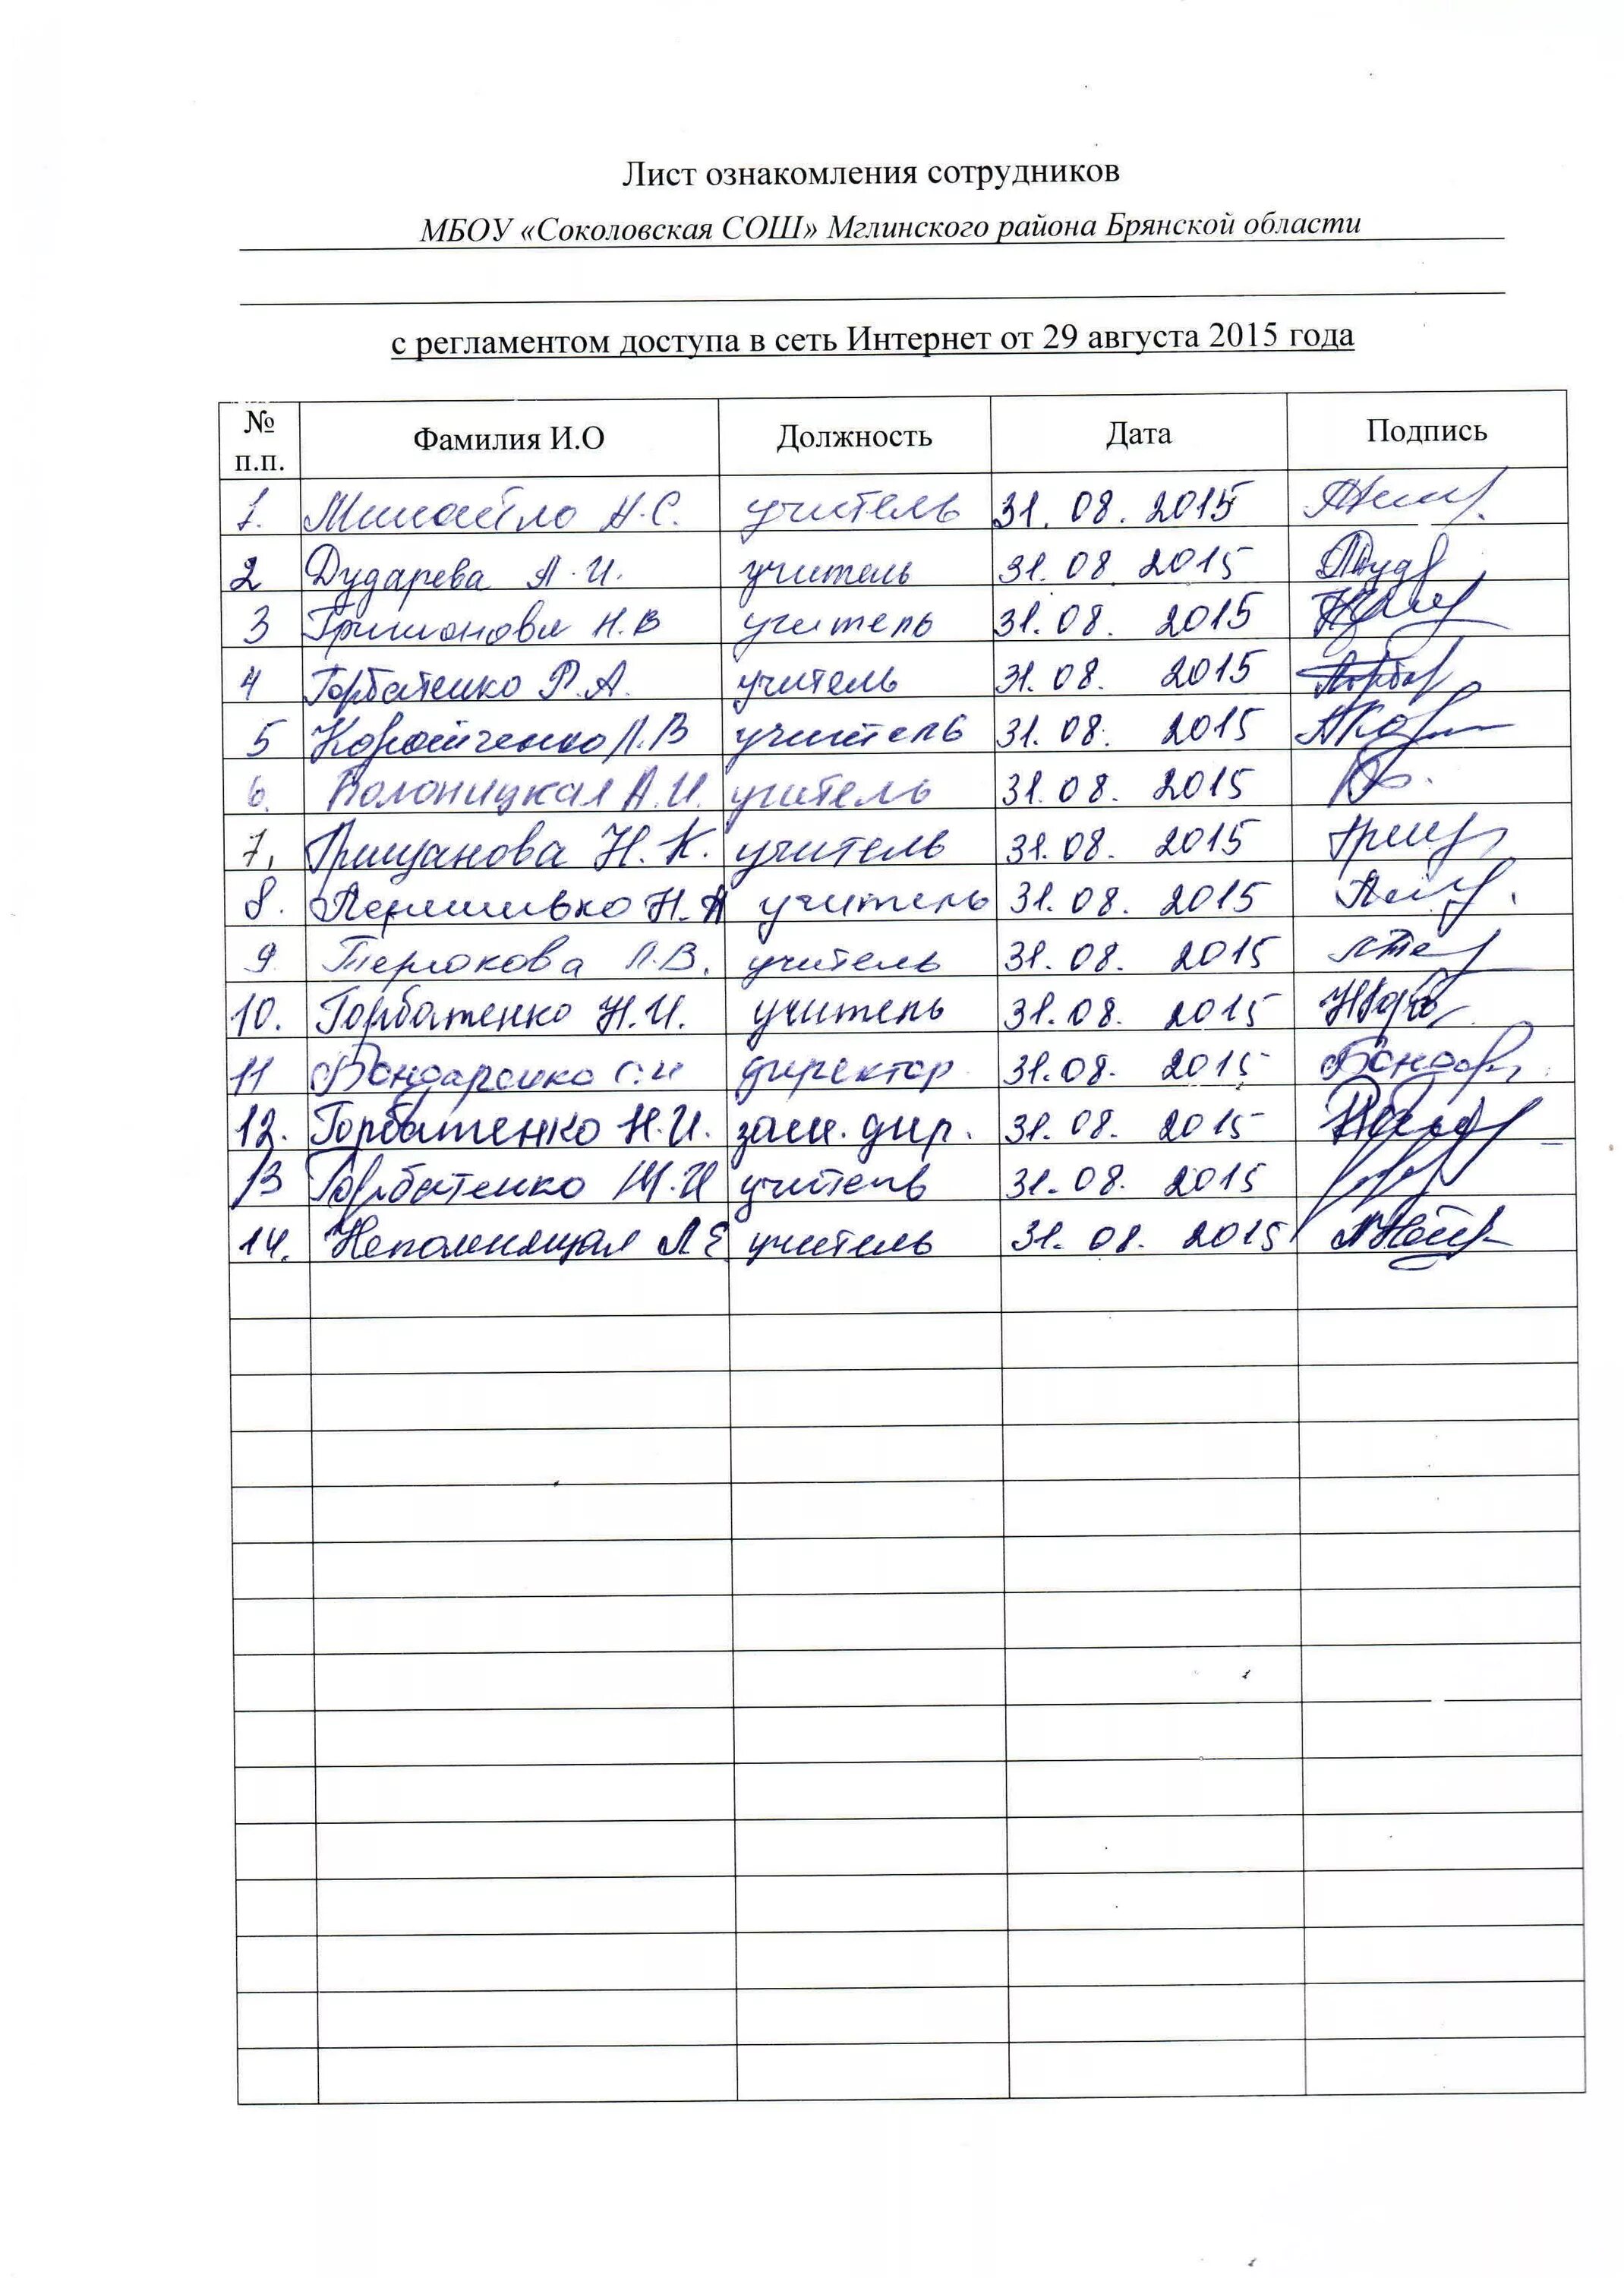 Лист ознакомления сотрудников
МБОУ «Соколовская СОШ» Мглинского района Брянской области
с регламентом доступа в сеть Интернет от 29 августа 2015 года
№ п.п. Фамилия И.О Должность Дата Подпись
1. Н.С. учитель 31. 08. 2015
2 Дударева А.И. учитель 31. 08. 2015
3 Н.В учитель 31. 08. 2015
4 Горбатенко Р.А. учитель 31. 08. 2015
5 Коротченко Л.В учитель 31. 08. 2015
6. А.И. учитель 31. 08. 2015
7. Грищанова Н.К. учитель 31. 08. 2015
8. учитель 31. 08. 2015
9 Терюкова Л.В. учитель 31. 08. 2015
10. Горбатенко Н.И. учитель 31. 08. 2015
11 Бондаренко директор 31. 08. 2015
12. Горбатенко Н.И. зам. дир. 31. 08. 2015
13 Горбатенко М.И учитель 31. 08. 2015
14. Непомнящая Л Е учитель 31. 08. 2015